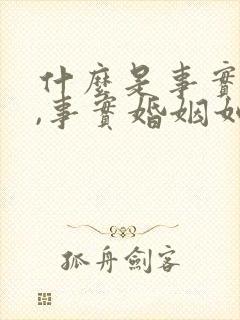 什麼是事實
,事實婚姻如
孤舟劍客